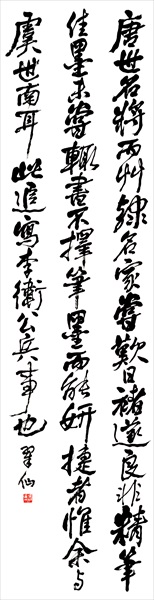 唐世名将而艸隸名家嘗歎曰褚遂良非精筆
佳墨未嘗輒書不擇筆墨而能妍捷者惟余与
虞世南耳 此追寫李衛公兵事也 翠仙